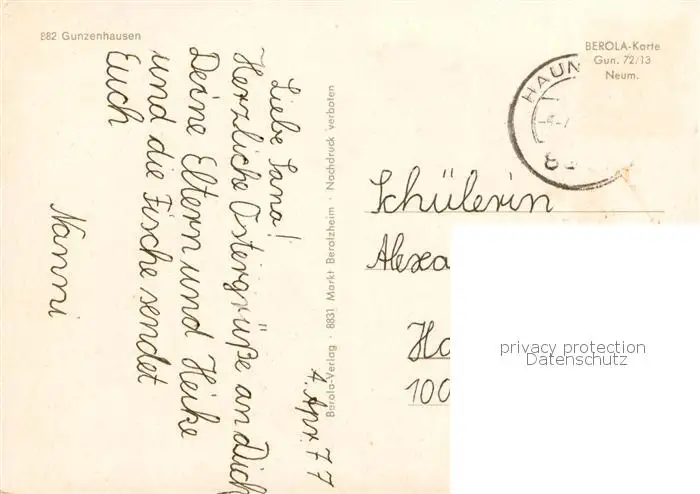 882 Gunzenhausen
4. Apr. 77
Liebe Sana!
Herzliche Ostergrüße an Dich
Deine Eltern und Heike
und die Fische sendet
Euch
Nanni
Berola-Verlag · 8831 Markt Berolzheim · Nachdruck verboten
BEROLA-Karte
Gun. 72/13
Neum.
HAUN
Schülerin
Alexa
Ho
100
privacy protection
Datenschutz